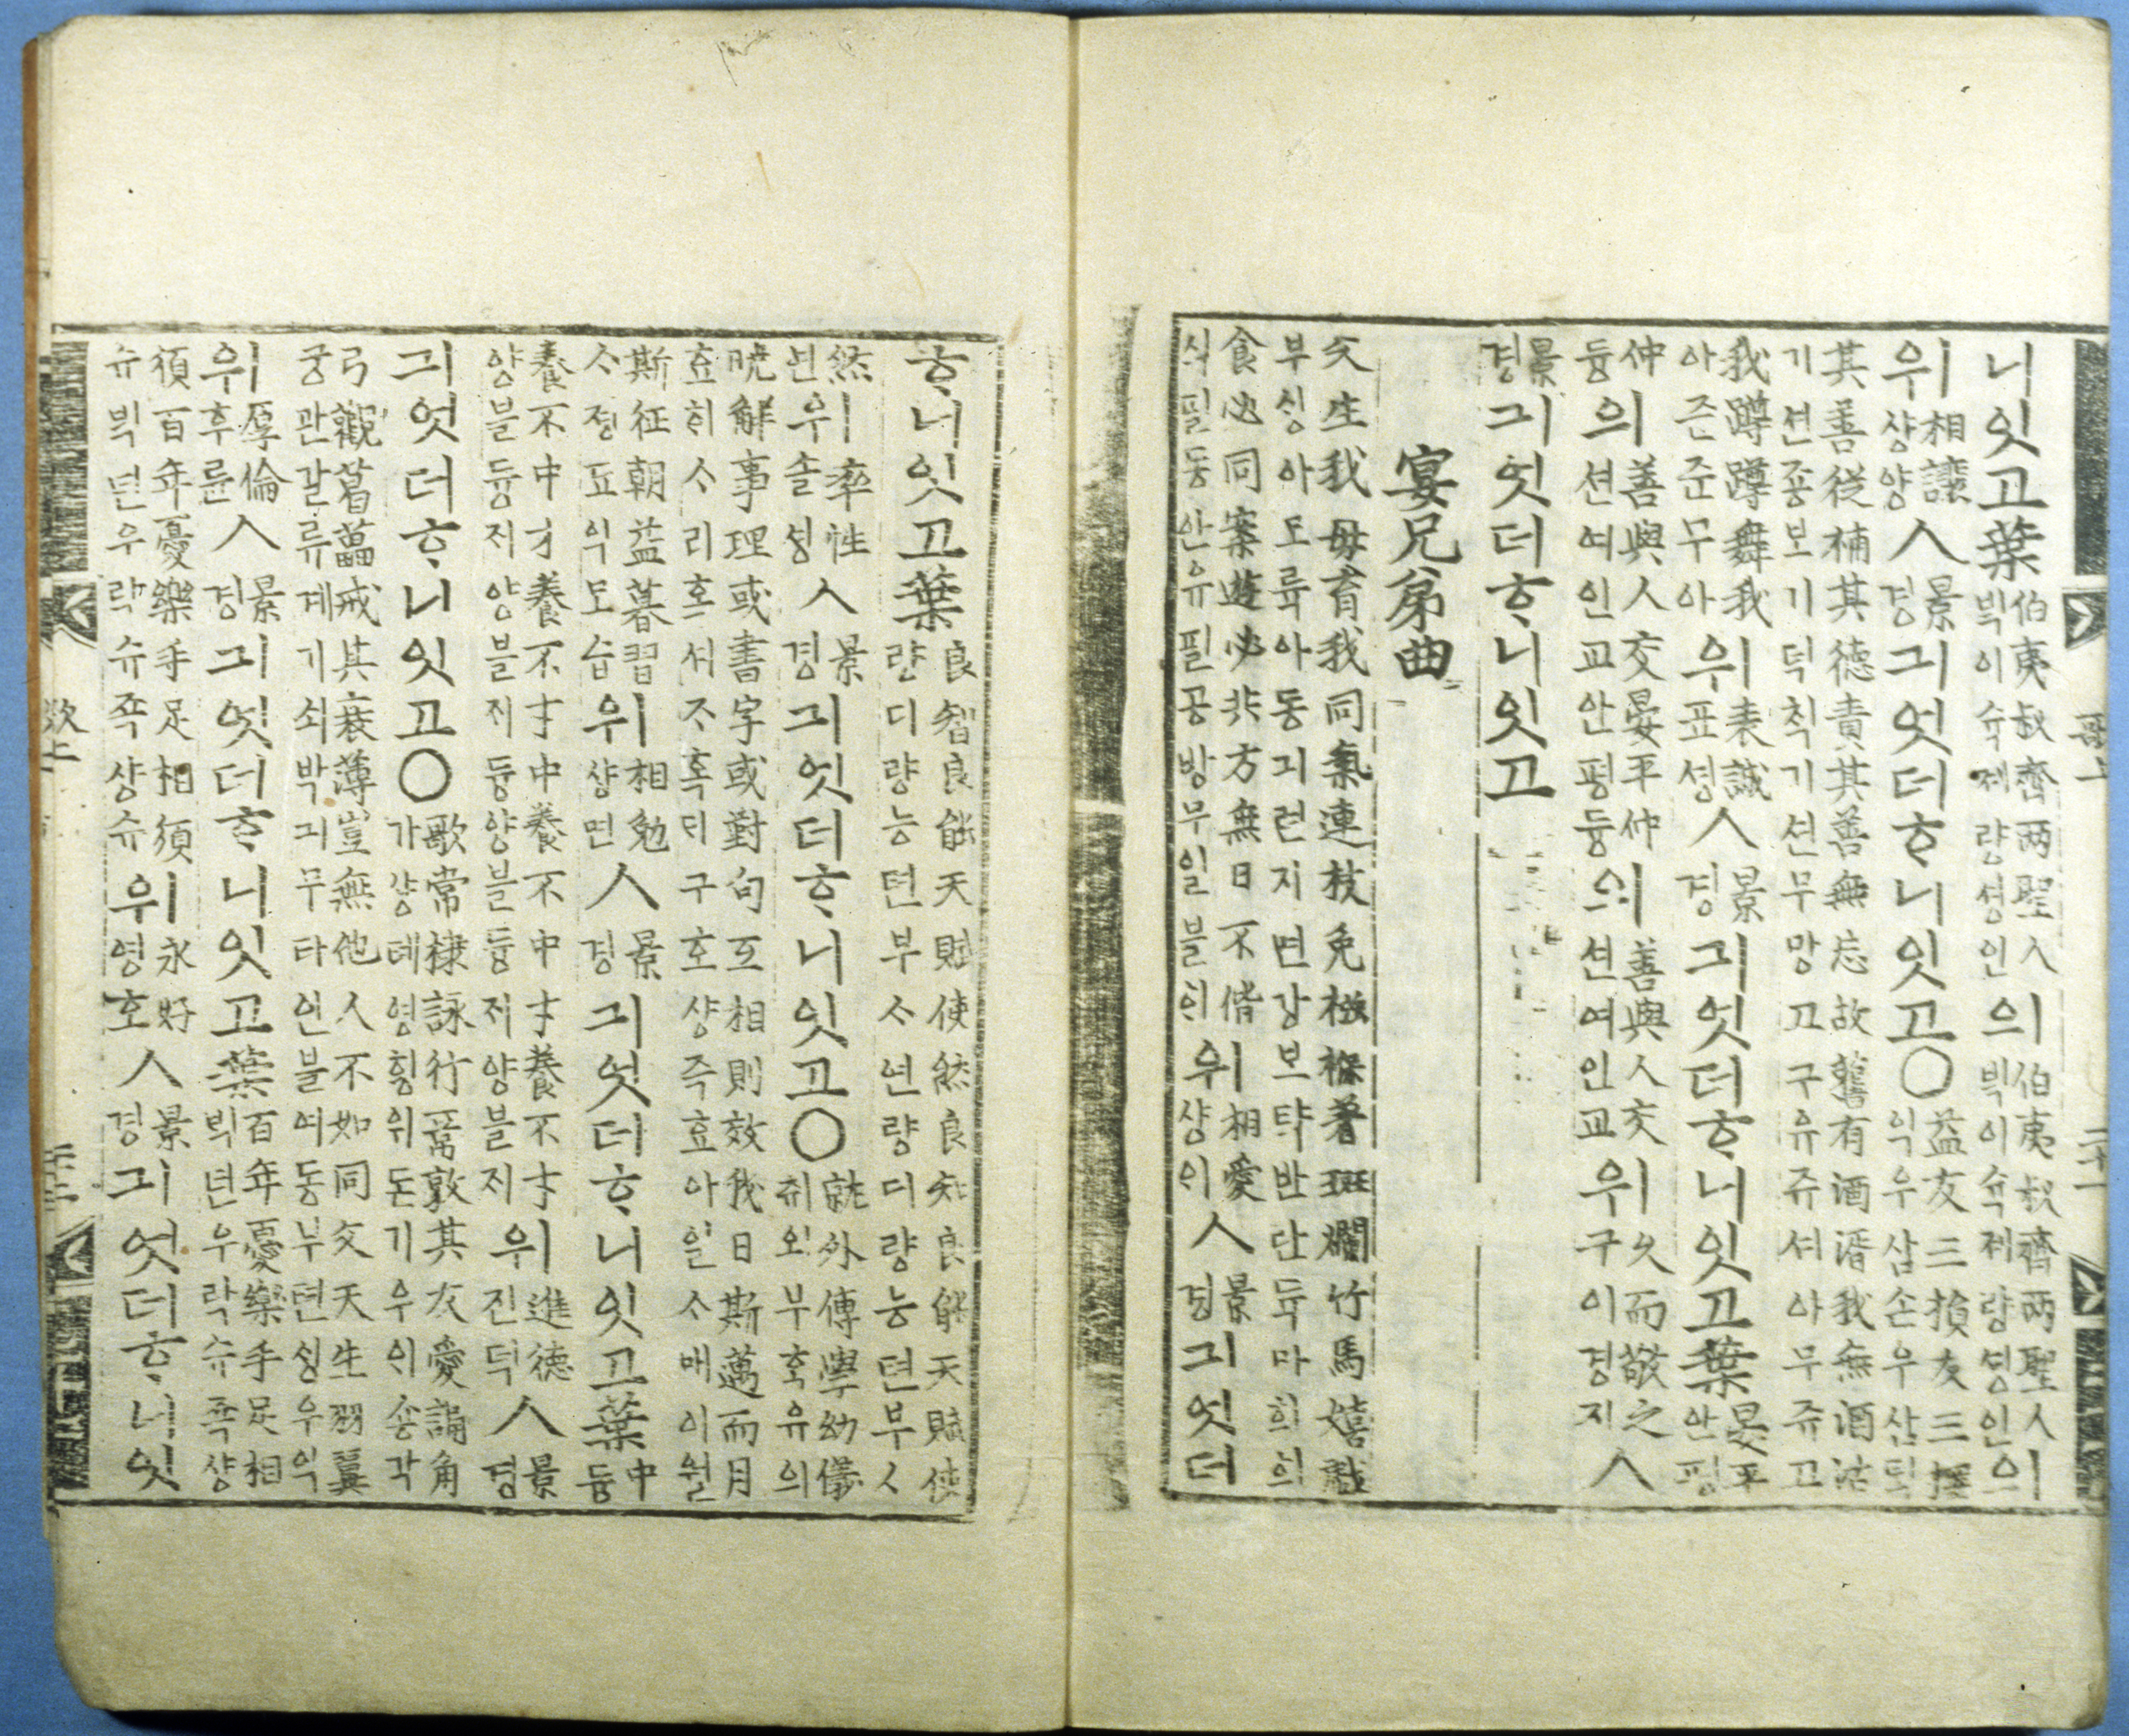 니잇고葉伯夷叔齊兩聖人ᄇᆡᆨ이슉졔량셩인의伯夷叔齊兩聖人ᄇᆡᆨ이슉졔량셩인의
위相讓샹양ㅅ景경긔엇더ᄒᆞ니잇고○益友三損友三擇익우삼손우삼ᄐᆡᆨ
其善從補其德責其善無忘故舊有酒湑我無酒沽기션죵보기덕ᄎᆡᆨ기션무망고구유쥬셔아무쥬고
我蹲蹲舞我아준준무아위表誠표셩ㅅ景경긔엇더ᄒᆞ니잇고葉晏平안평
仲듕의善與人交晏平仲션여인교안평듕의善與人交션여인교위久而敬之구이경지ㅅ
景경긔엇더ᄒᆞ니잇고
宴兄弟曲
父生我母育我同氣連枝免襁褓著斑爛竹馬嬉戱부ᄉᆡᆼ아모륙아동긔련지면강보탹반란듁마희희
食必同案遊必共方無日不偕식필동안유필공방무일블ᄒᆡ위相愛샹ᄋᆡㅅ景경긔엇더
ᄒᆞ니잇고葉良智良能天賦使然良知良能天賦使량디량능텬부ᄉᆞ연량디량능텬부ᄉᆞ
然년위率性솔셩ㅅ景경긔엇더ᄒᆞ니잇고○就外傅學幼儀취외부ᄒᆞᆨ유의
曉解事理或書字或對句互相則效我日斯邁而月효ᄒᆡᄉᆞ리혹셔ᄌᆞ혹ᄃᆡ구호샹즉효아일ᄉᆞ매이월
斯征朝益暮習ᄉᆞ졍됴익모습위相勉샹면ㅅ景경긔엇더ᄒᆞ니잇고葉中듕
養不中才養不才中養不中才養不才양블듕ᄌᆡ양블ᄌᆡ듕양블듕ᄌᆡ양블ᄌᆡ위進德진덕ㅅ景경
긔엇더ᄒᆞ니잇고○歌常棣詠行葦敦其友愛誦角가샹톄영ᄒᆡᆼ위돈기우ᄋᆡ숑각
弓觀葛藟戒其衰薄豈無他人不如同父天生羽翼궁관갈류계기쇠박긔무타인블여동부텬ᄉᆡᆼ우익
위厚倫후륜ㅅ景경긔엇더ᄒᆞ니잇고葉百年憂樂手足相ᄇᆡᆨ년우락슈죡샹
須百年憂樂手足相須슈ᄇᆡᆨ년우락슈죡샹슈위永好영호ㅅ景경긔엇더ᄒᆞ니잇